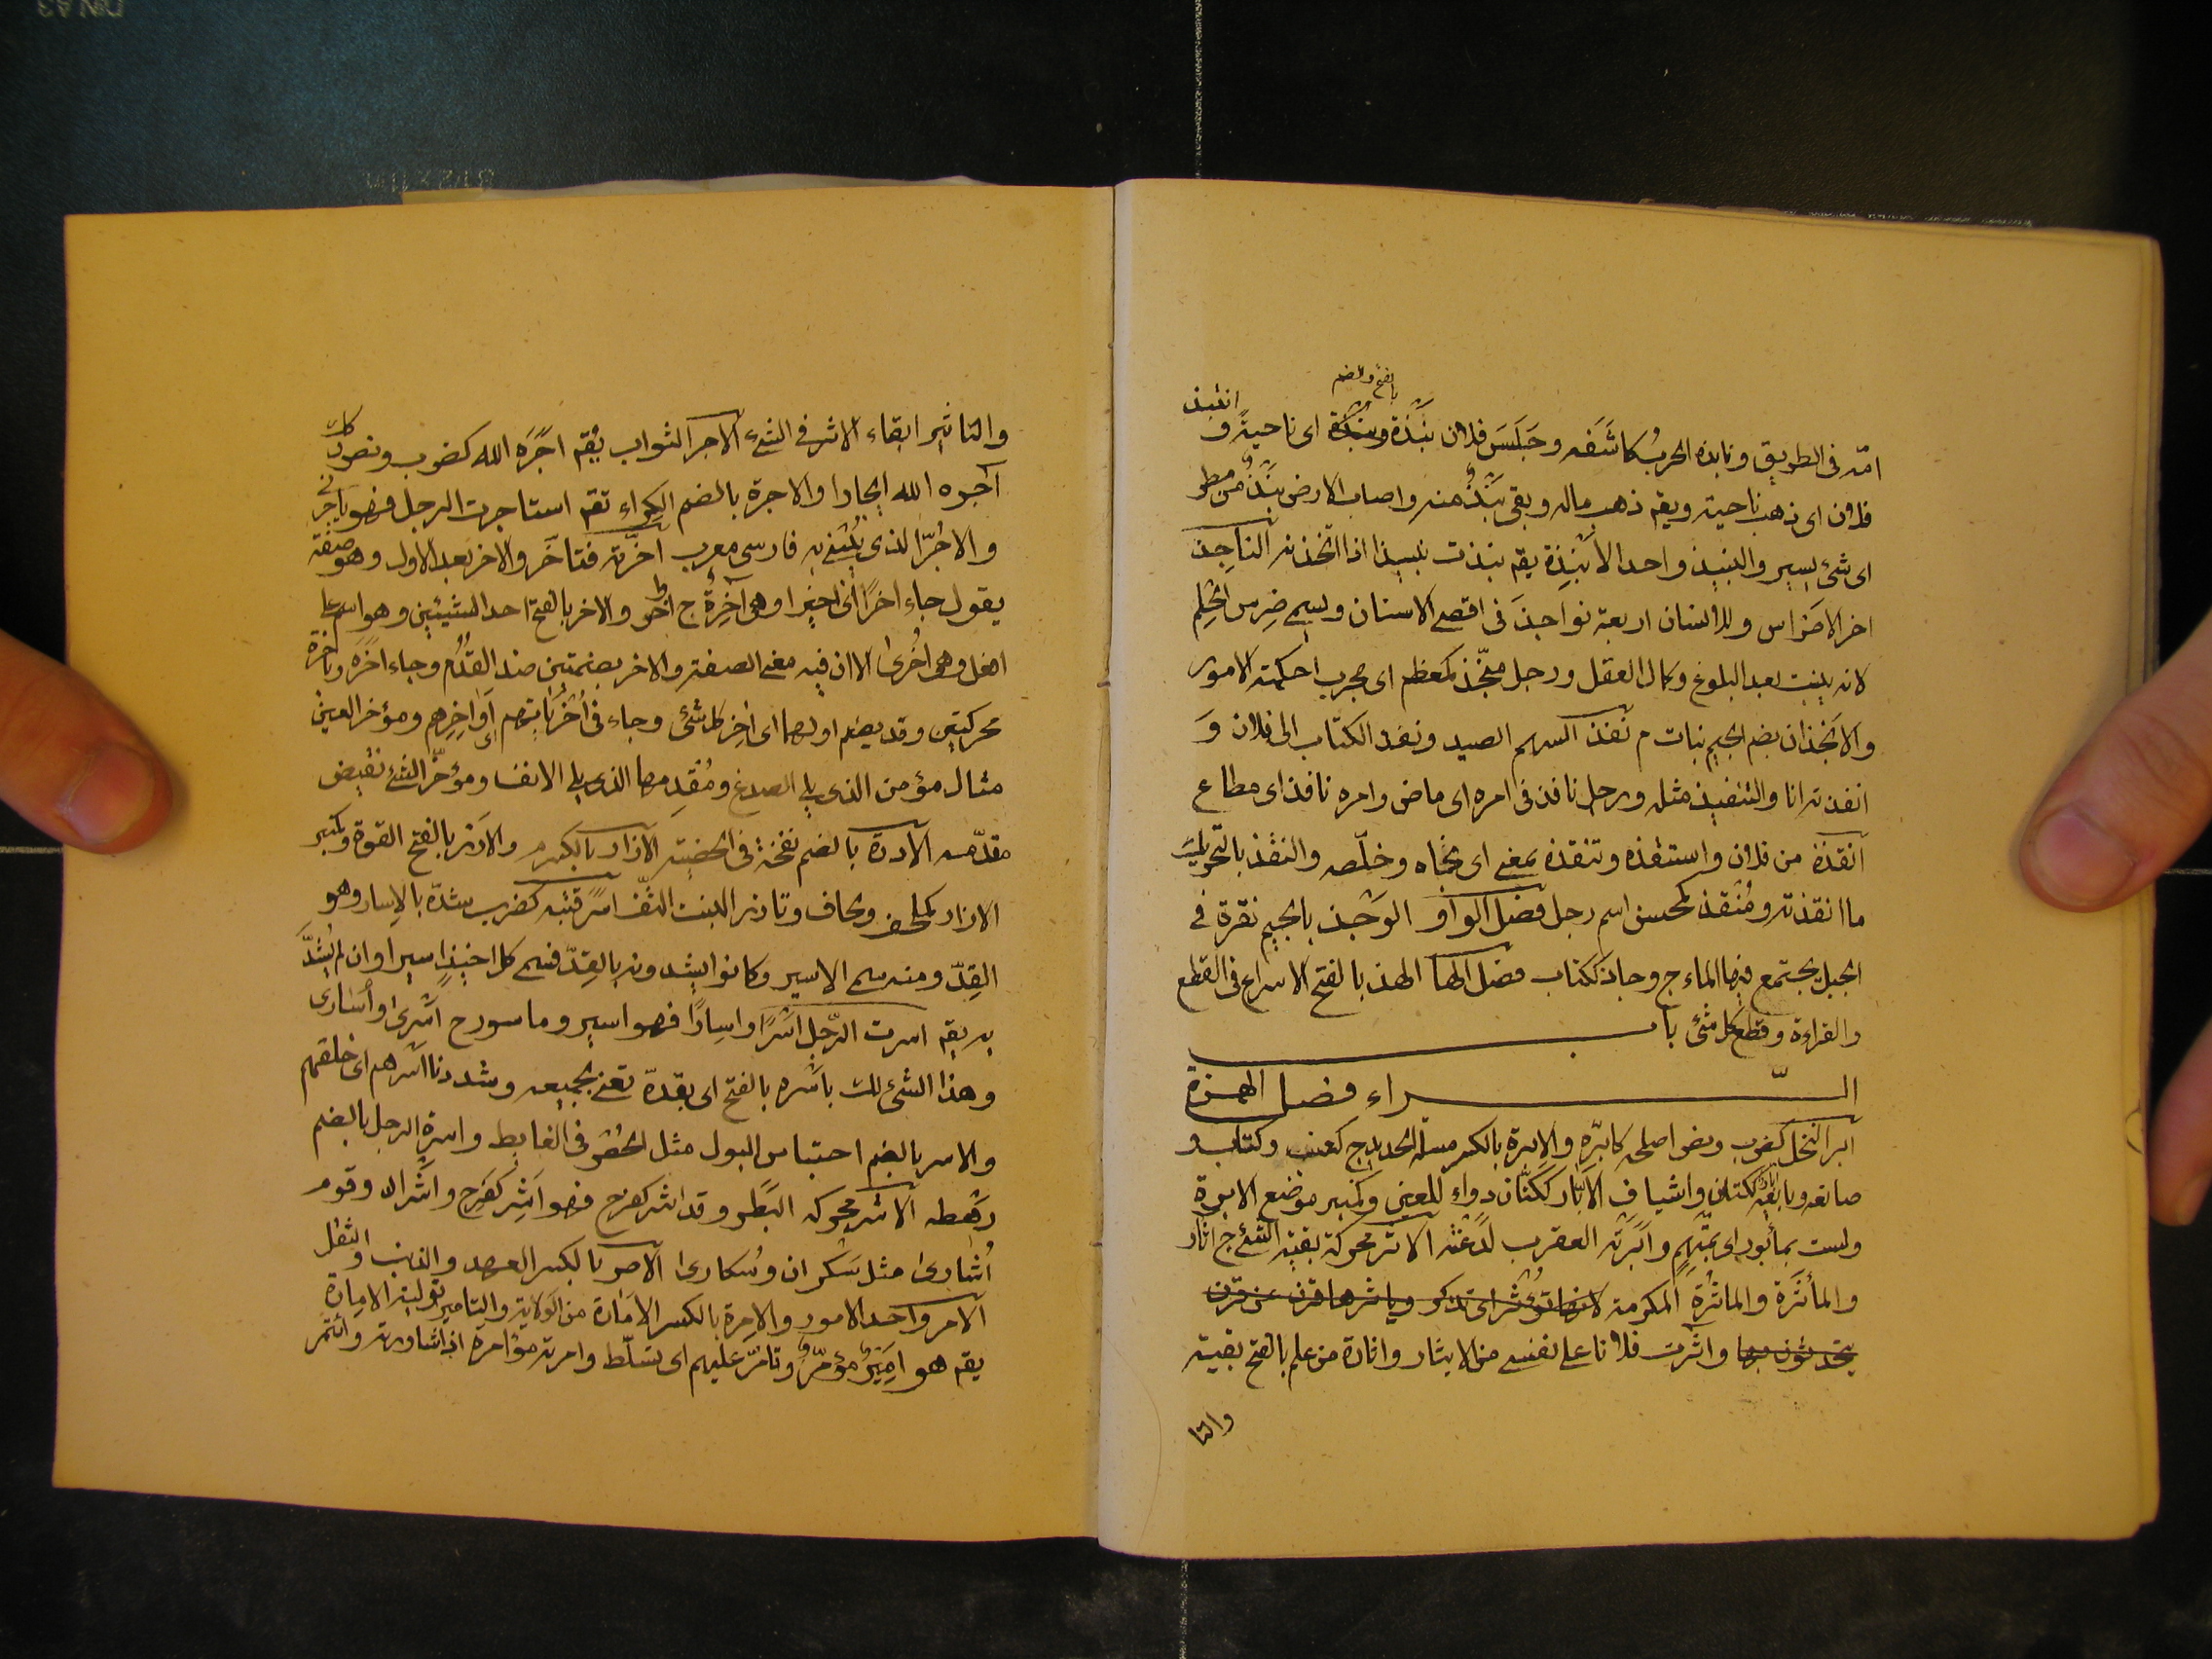 بالفتح والضم
امّه فى الطريق ونابذه الحربُ كاشَفَه وجَلَسَ فلان نَبْذَة ونُبْذَة اى ناحيةً و انتبذ
فلان اى ذهب ناحيته ويقم ذهب ماله وبقى نَبْذٌ منه واصاب الارض نَبْذٌ من مطر
اى شئ يسير والنبيذ واحد الأنبِذة يقم نبذت نبيذا اذا اتخذته الناجِذ
اخر الاضراس وللانسان اربعة نواجذ فى اقصى الاسنان ويسمى ضِرس الحِلم
لانه ينبت بعد البلوغ وكمال العقل ورجل منجّذ كمعظم اى مجرب احكمته الامور
والانجُذان بضم الجيم نبات م نفذ السهم الصيد ونفذ الكتاب الى فلان وَ
انفذته انا والتنفيذ مثله ورجل نافذ فى امره اى ماض وامره نافذ اى مطاع
انقذه من فلان واستنقذه وتنقذه بمعنى اى نجّاه وخلّصه والنقذ بالتحريك
ما انقذته ومُنقذ كمحسن اسم رجل فصل الواو الوَجْذ بالجيم نقرة فى
الجبل يجتمع فيها الماء ج وجاذ ككتاب فصل الها الهذ بالفتح الاسراع فى القطع
والقراءة وقطع كل شئ باب
الراء فصل الهمزة
ابر النخل كضرب ونصر اصلحه كابّره والابرة بالكسر مسلة الحديد ج كعنب وكتاب و
صانعه وبايعه ككتان واشياف الأبّار ككتّان دواء للعين وكمنبر موضع الابرة
ولست بمأبور اى بمتّهم وابَرَته العقرب لدَغَته الاثر محركة بقية الشئ ج اثار
والمأثَرَة والماثُرة المكرمة لانها تؤثر اى تذكر وياثرها قرن عن قرن
يتحدثون بها واثرت فلانا على نفسى من الايثار واثارة من علم بالفتح بقية
والتا
والتاثير ابقاء الاثر فى الشئ الاجر الثواب يُقم اجَرَه الله كضرب ونصر وكك
آجره الله ايجارا والاجرة بالضم الكراء تقم استاجرت الرجل فهو ياجرنى
والاجُرّ الذى يُبنى به فارسى معرب اخّرته فتاخّر والاخر بعد الاول وهو صفة
يقول جاء اخرًا اى اخيرا وهى آخِرةٌ ج اخَر والاخر بالفتح احد الشيئين وهو اسم على
افعل وهى اخرى الا ان فيه معنى الصفة والاخر بضمتين ضد القُدُم وجاء اخَرَه وباخَرَة
محركتين وقد يضم اولهما اى اخِر كل شئ وجاء فى اُخْرَياتهم اى اَواخِرِهم ومؤخر العين
مثال مؤمن الذى يلى الصدغ ومُقْدِمها الذى يلى الانف ومؤخّر الشئ نقيض
مقدّمه الادرة بالضم نفخة فى الخصية الازار بالكسر م والازر بالفتح القوة وكمنبر
الازار كملحف ولحاف وتازر النبت التفّ اسَر قتبه كضرب شدّه بالاِسار وهو
القِدّ ومنه سمى الاسير وكانوا يشدونه بالقِدّ فسمى كل اخيذ اسيرا وان لم يُشدَّ
به يقم اسرت الرّجل اسْرًا واِسارًا فهو اسير وماسور ج اسْرى واُسارى
وهذا الشئ لك باسْره بالفتح اى بقدّه تعنى بجميعه وشددنا اسرهم اى خلقهم
والاسر بالضم احتباس البول مثل الحُصْر فى الغايط واسرة الرجل بالضم
رَهطه الاشر محركه البَطَر وقد اشر كفرح فهو اَشِر كفرح واشران وقوم
اُشارى مثل سَكران وسُكارى الاصر بالكسر العهد والذنب والثقل
الامر واحد الامور والامرة بالكسر الاَمارة من الولاية والتامير تولية الامارة
يقم هو اميرٌ مؤمّرٌ وتامّر عليهم اى تسلّط وامرته مؤامرة اى شاورته وائتمر